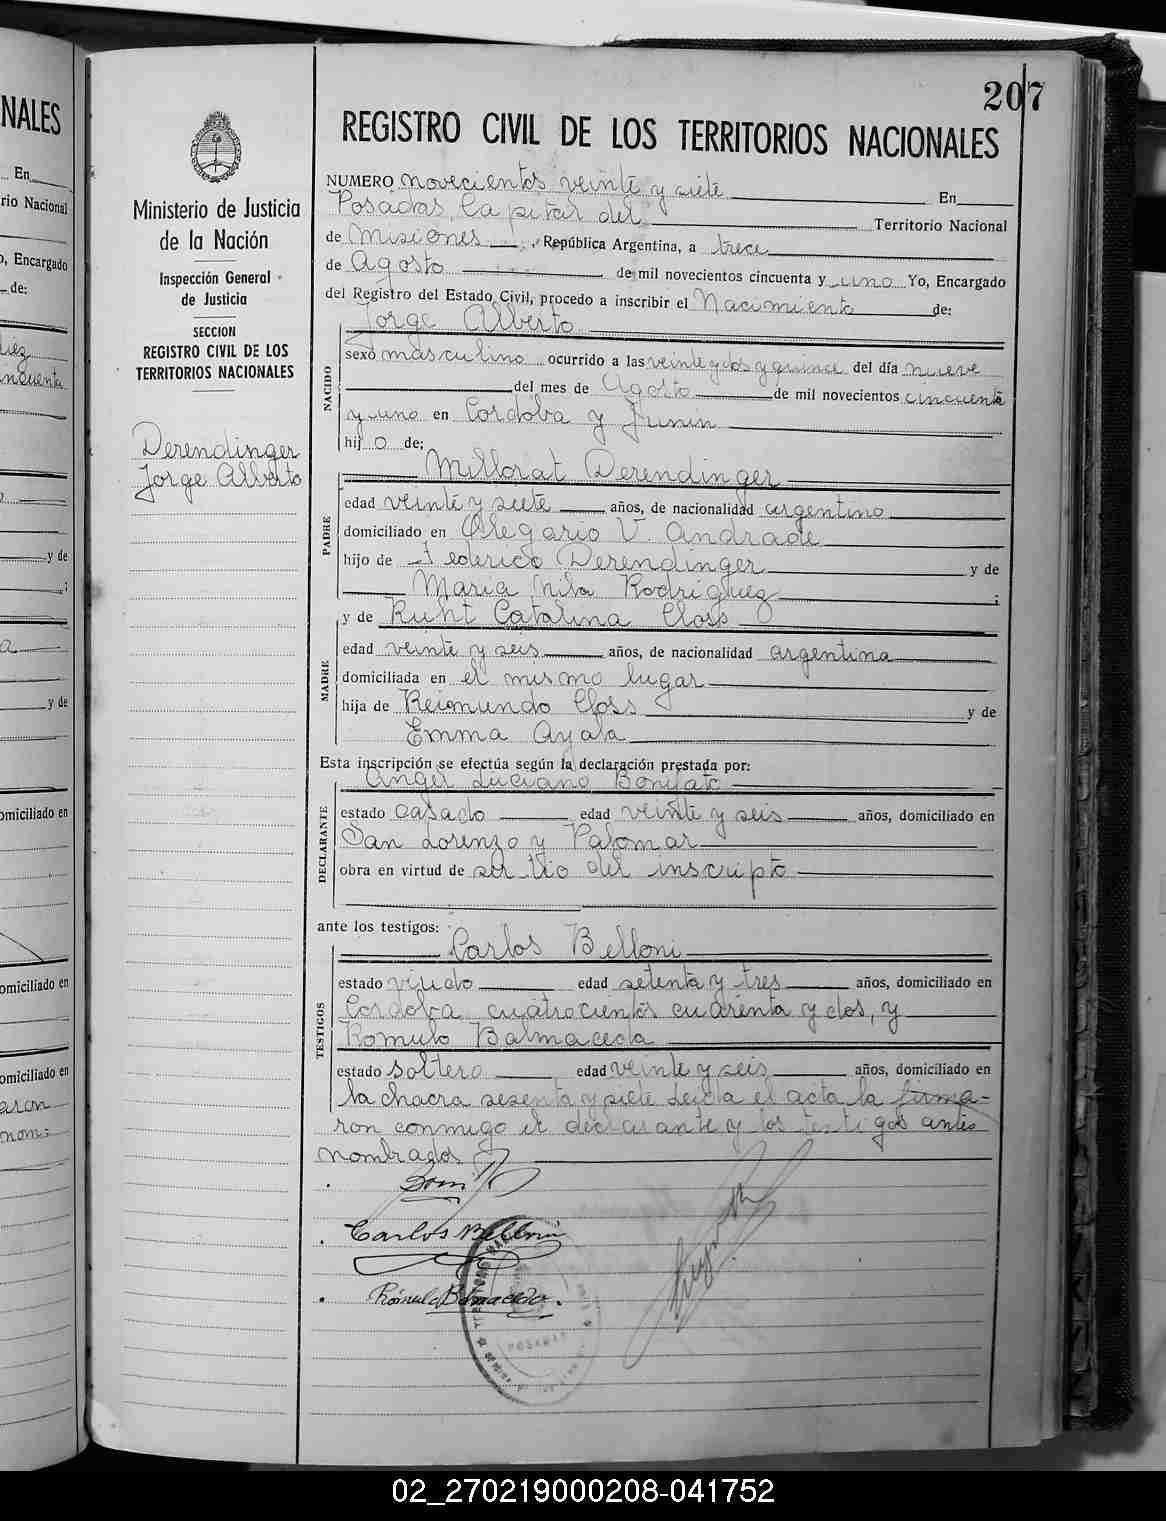 207
REGISTRO CIVIL DE LOS TERRITORIOS NACIONALES
Ministerio de Justicia
de la Nación
Inspección General
de Justicia
SECCION
REGISTRO CIVIL DE LOS
TERRITORIOS NACIONALES
Derendinger
Jorge Alberto
NUMERO novecientos veinte y siete En
Posadas, Capital del Territorio Nacional
de Misiones, República Argentina, a trece
de Agosto de mil novecientos cincuenta y uno Yo, Encargado
del Registro del Estado Civil, procedo a inscribir el Nacimiento de:
Jorge Alberto
NACIDO
sexo masculino ocurrido a las veinte y dos y quince del día nueve
del mes de Agosto de mil novecientos cincuenta
y uno en Cordoba y Junin
hijo de:
Millorat Derendinger
PADRE
edad veinte y siete años, de nacionalidad argentino
domiciliado en Olegario V. Andrade
hijo de Federico Derendinger y de
Maria Rodriguez ;
y de Ruht Catalina Closs
MADRE
edad veinte y seis años, de nacionalidad argentina
domiciliada en el mismo lugar
hija de Reimundo Closs y de
Emma Ayala
Esta inscripción se efectúa según la declaración prestada por:
Angel Luciano Bonifato
DECLARANTE
estado casado edad veinte y seis años, domiciliado en
San Lorenzo y Palomar
obra en virtud de ser tio del inscripto
ante los testigos:
Carlos Belloni
TESTIGOS
estado viudo edad setenta y tres años, domiciliado en
Cordoba cuatrocientos cuarenta y dos, y
Romulo Balmaceda
estado soltero edad veinte y seis años, domiciliado en
la chacra sesenta y siete Leida el acta la firma-
ron conmigo el declarante y los testigos antes
nombrados
Carlos Belloni
Rómulo Balmaceda.
POSADAS
NALES
En
rio Nacional
, Encargado
de:
y de
;
y de
omiciliado en
omiciliado en
omiciliado en
02_270219000208-041752